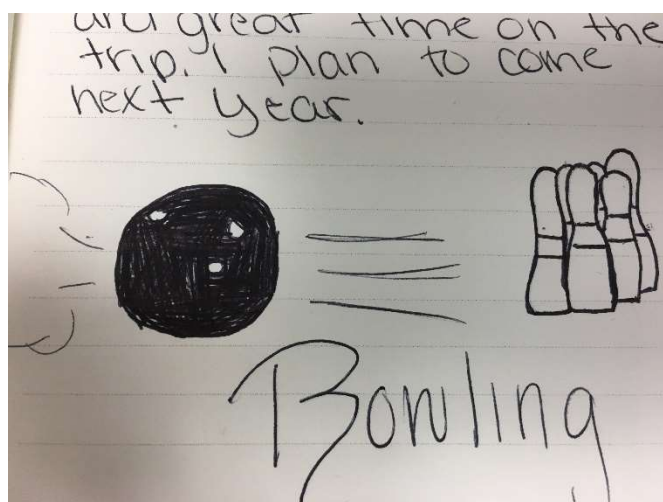 and great time on the
trip. I plan to come
next year.
Bowling